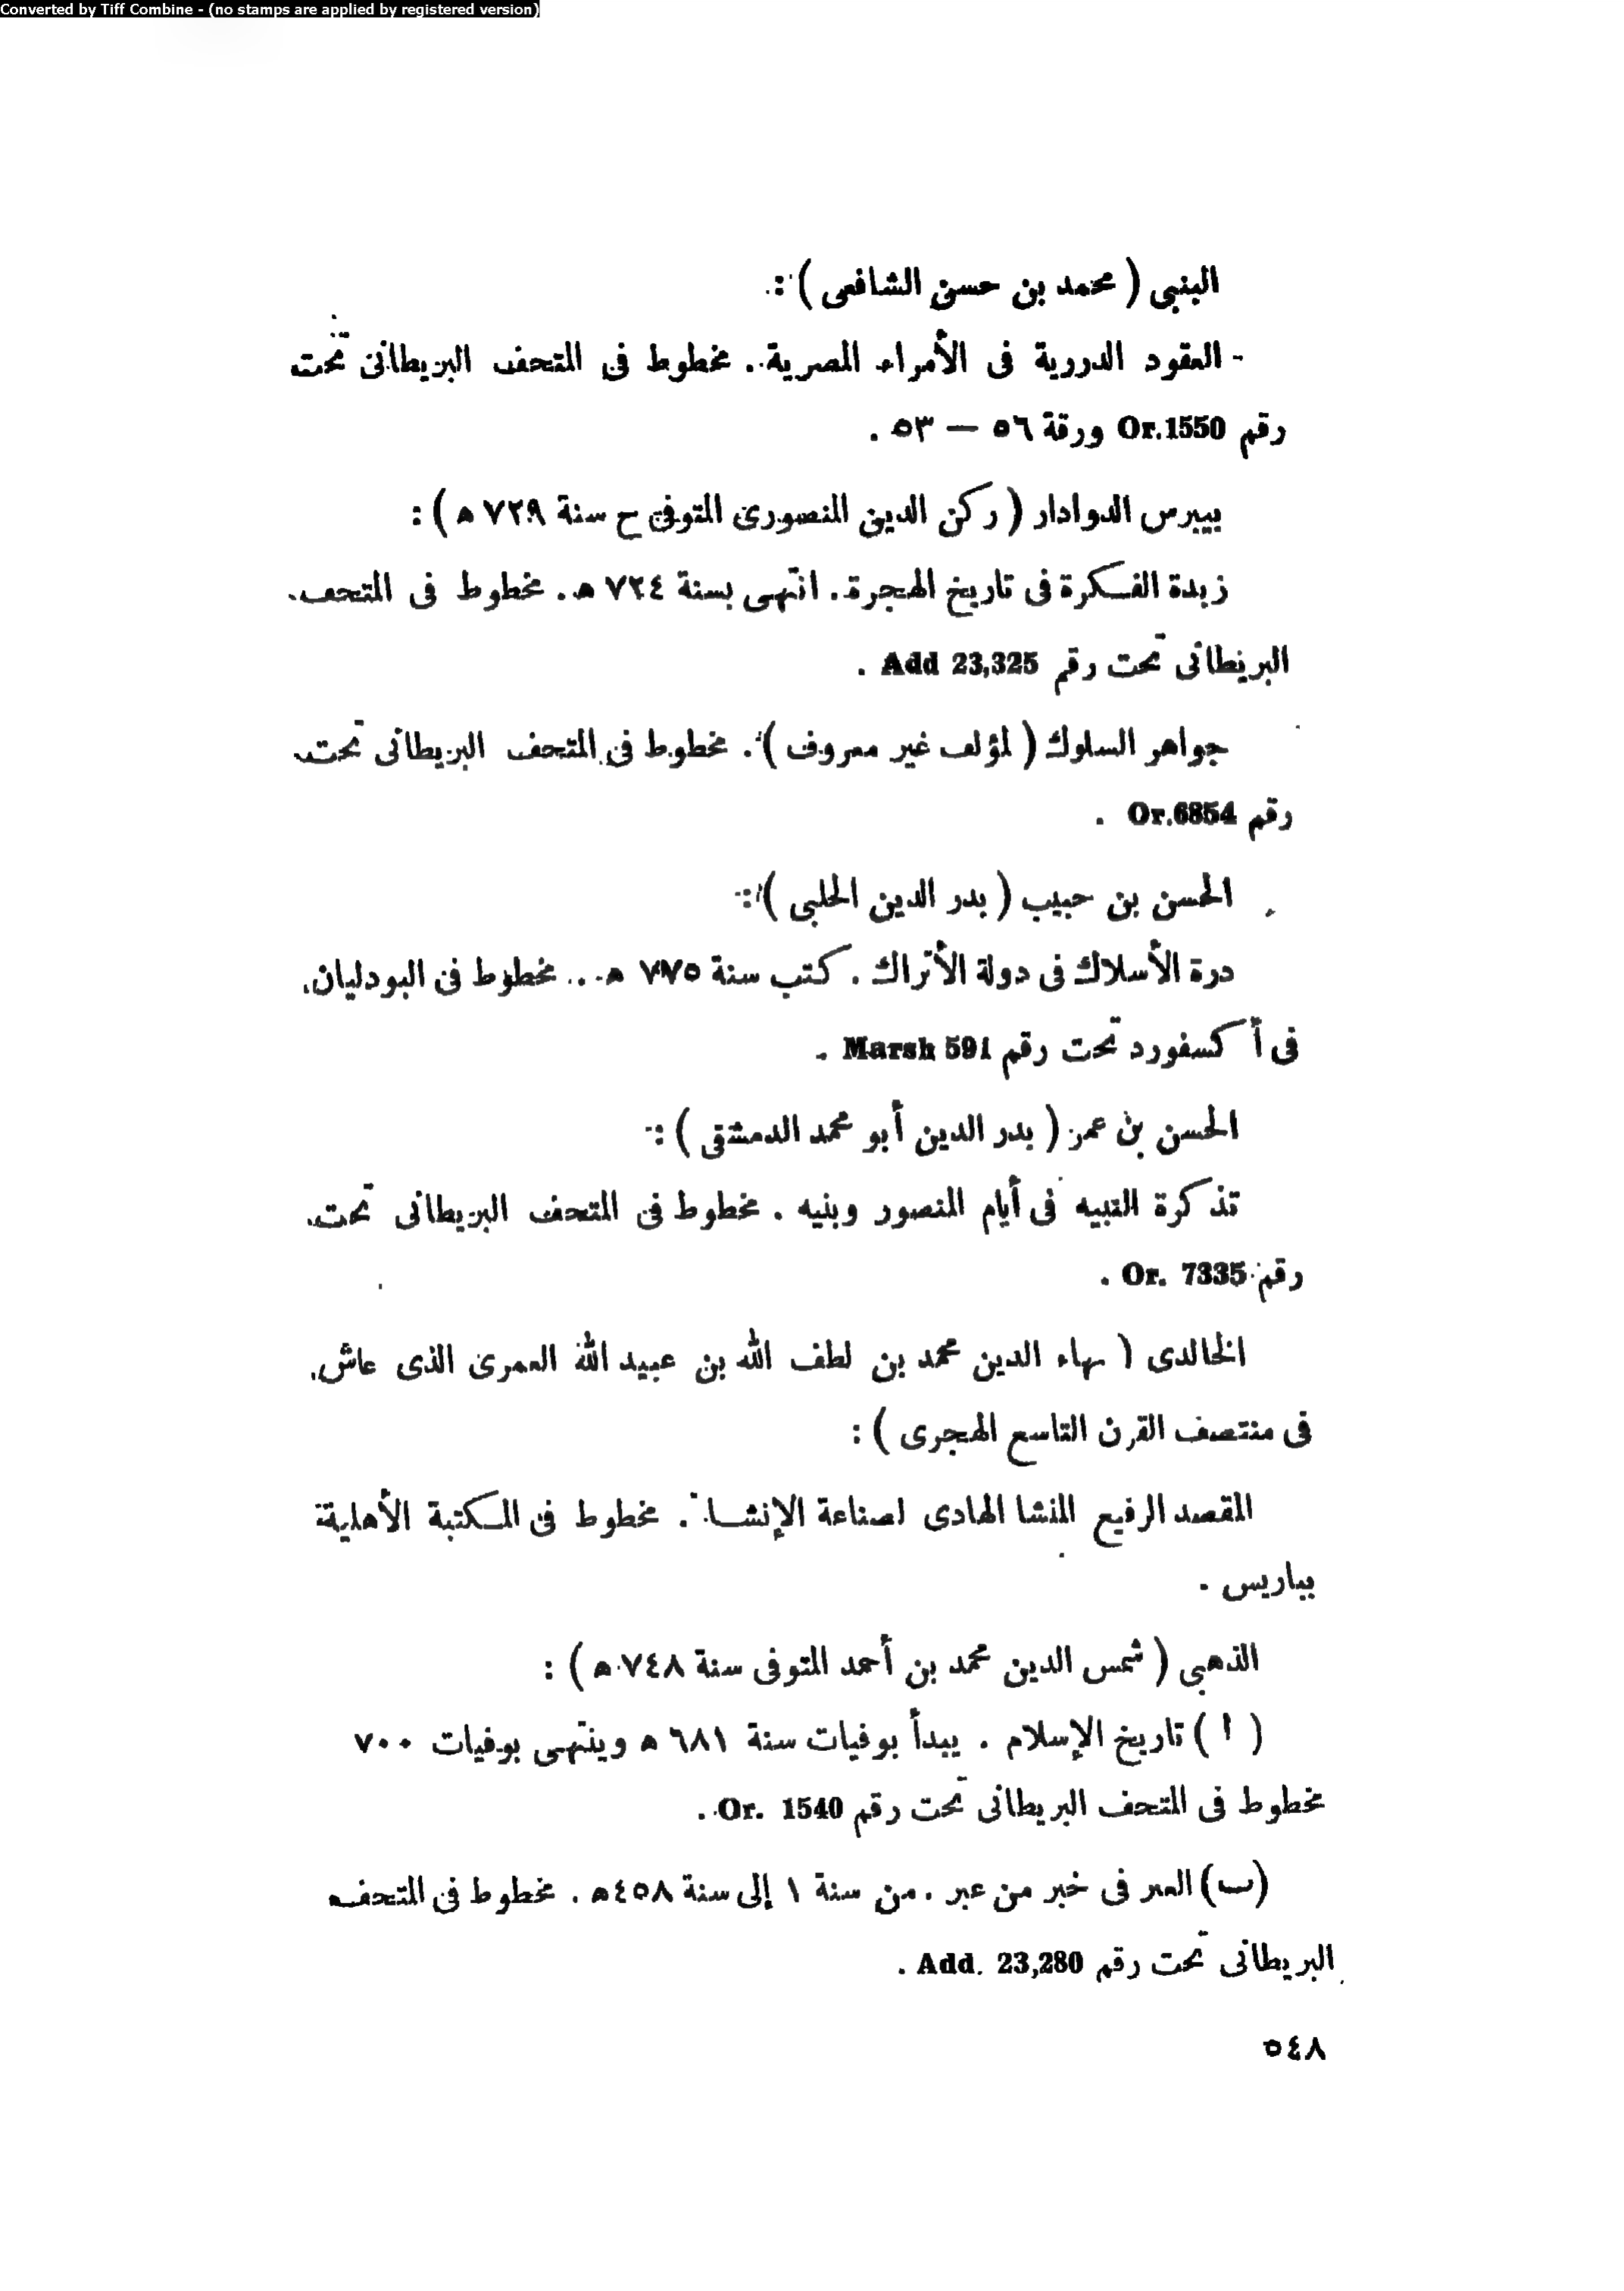 Converted by Tiff Combine - (no stamps are applied by registered version)
البنبى ( محمد بن حسن الشافعى ) :
- العقود الدررية فى الأمراء المصرية . مخطوط فى المتحف البريطانى تحت
رقم Or.1550 ورقة ٥٦ — ٥٣ .
بيبرس الدوادار ( ركن الدين المنصورى المتوفى ح سنة ٧٢٩ ه ) :
زبدة الفكرة فى تاريخ الهجرة . انتهى بسنة ٧٢٤ ه . مخطوط فى المتحف
البريطانى تحت رقم Add 23,325 .
جواهر السلوك ( لمؤلف غير معروف ) . مخطوط فى المتحف البريطانى تحت
رقم Or.6854 .
الحسن بن حبيب ( بدر الدين الحلبى ) :
درة الأسلاك فى دولة الأتراك . كتب سنة ٧٧٥ ه . مخطوط فى البودليان
فى أكسفورد تحت رقم Marsh 591 .
الحسن بن عمر ( بدر الدين أبو محمد الدمشقى ) :
تذكرة التبيه فى أيام المنصور وبنيه . مخطوط فى المتحف البريطانى تحت
رقم Or. 7335 .
الخالدى ( بهاء الدين محمد بن لطف الله بن عبيد الله العمرى الذى عاش
فى منتصف القرن التاسع الهجرى ) :
المقصد الرفيع المنشا الهادى لصناعة الإنشا . مخطوط فى المكتبة الأهلية
بباريس .
الذهبى ( شمس الدين محمد بن أحمد المتوفى سنة ٧٤٨ ه ) :
( ا ) تاريخ الإسلام . يبدأ بوفيات سنة ٦٨١ ه وينتهى بوفيات ٧٠٠
مخطوط فى المتحف البريطانى تحت رقم Or. 1540 .
(ب) العبر فى خبر من عبر . من سنة ١ إلى سنة ٤٥٨ه . مخطوط فى المتحف
البريطانى تحت رقم Add. 23,280 .
٥٤٨